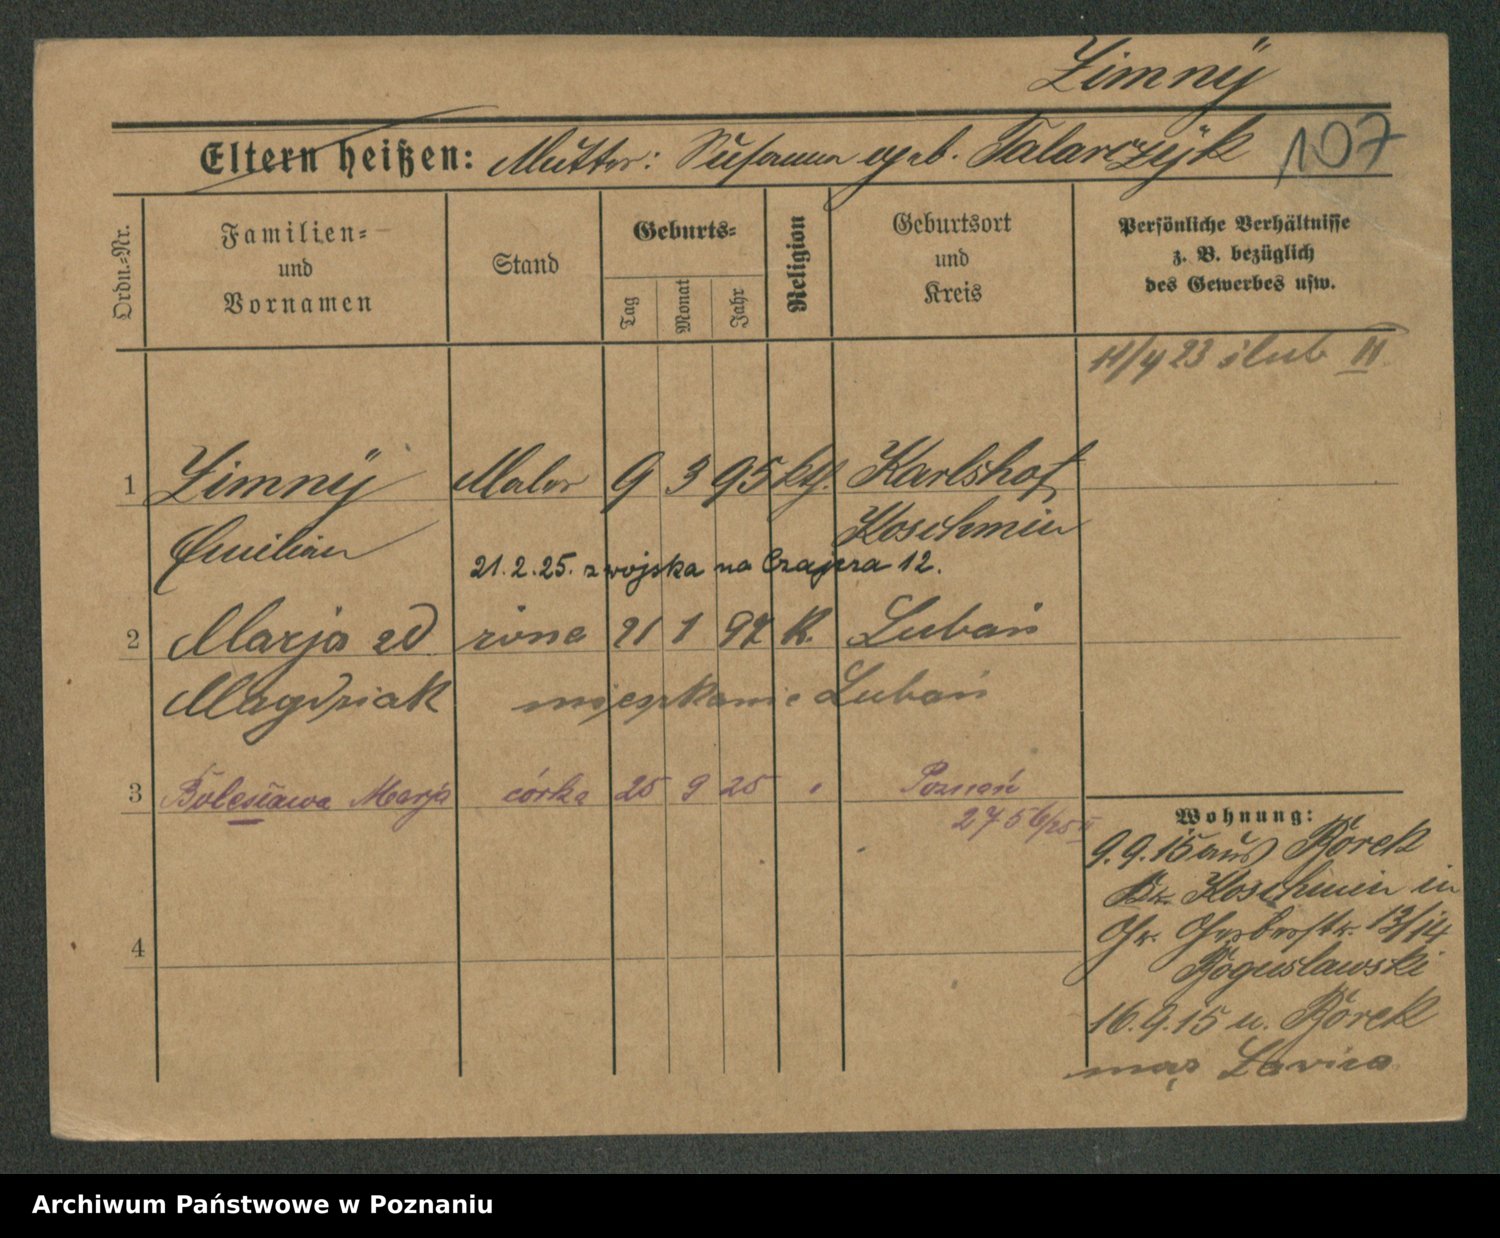 Zimnÿ
Eltern heißen: Mutter: Susanna geb. Talarczÿk 107
Ordn.-Nr.
Familien-
und
Vornamen
Stand
Geburts-
Tag
Monat
Jahr
Religion
Geburtsort
und
Kreis
Persönliche Verhältnisse
z. B. bezüglich
des Gewerbes usw.
11/4 23 ślub II
1 Zimnÿ Maler 9 3 95 kth. Karlshof
Emilian Koschmin
21.2.25. z wojska na Czajcza 12.
2 Marja zd żona 21 1 97 K. Luban
Magdziak mieszkanie Luban
3 Bolesława Marja córka 25 9 25 " Poznań
2756/25 II
4
Wohnung:
9.9.15 aus Borek
Kr. Koschmin in
Gr. Gerberstr. 13/14
Boguslawski
16.9.15 n. Borek
mąż